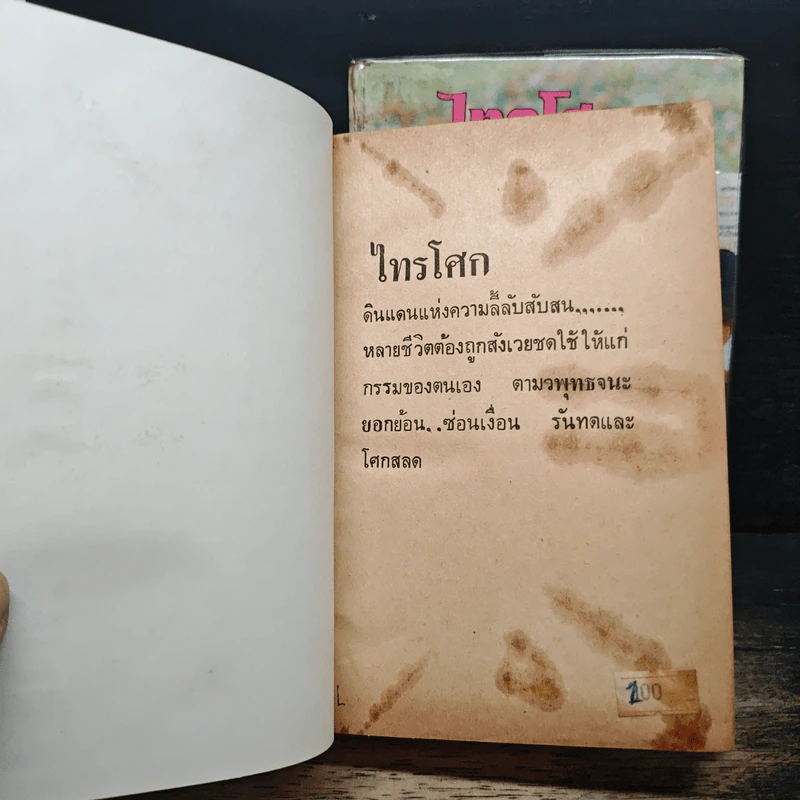 ไทรโศก
ไทรโศก
ดินแดนแห่งความลี้ลับสับสน........
หลายชีวิตต้องถูกสังเวยชดใช้ให้แก่
กรรมของตนเอง ตามวพุทธจนะ
ยอกย้อน..ซ่อนเงื่อน รันทดและ
โศกสลด
200